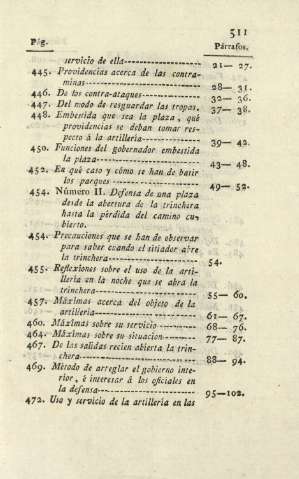 511
Pág. Párrafos.
servicio de ella------------------ 21— 27.
445. Providencias acerca de las contra-
minas-------------------------- 28— 31.
446. De los contra-ataques-------------- 32— 36.
447. Del modo de resguardar las tropas. 37— 38.
448. Embestida que sea la plaza, qué
providencias se deban tomar res-
pecto á la artillería-------------- 39— 42.
450. Funciones del gobernador embestida
la plaza------------------------ 43— 48.
452. En qué caso y cómo se han de batir
los parques -------------------- 49— 52.
454. Número II. Defensa de una plaza
desde la abertura de la trinchera
hasta la pérdida del camino cu-
bierto.
454. Precauciones que se han de observar
para saber cuando el sitiador abre
la trinchera-------------------- 54.
455. Reflexiones sobre el uso de la arti-
llería en la noche que se abra la
trinchera---------------------- 55— 60.
457. Máximas acerca del objeto de la
artillería---------------------- 61— 67.
460. Máximas sobre su servicio---------- 68— 76.
464. Máximas sobre su situacion-------- 77— 87.
467. De las salidas recien abierta la trin-
chera-------------------------- 88— 94.
469. Método de arreglar el gobierno inte-
rior, é interesar á los oficiales en
la defensa---------------------- 95—102.
472. Uso y servicio de la artillería en las